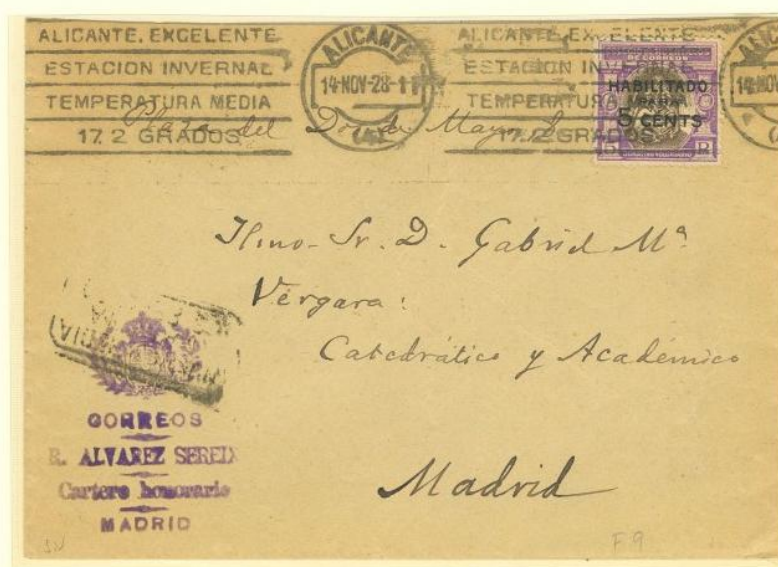 ALICANTE, EXCELENTE
ESTACION INVERNAL
TEMPERATURA MEDIA
17.2 GRADOS
ALICANTE
14·NOV·28·11
ALICANTE, EXCELENTE
ESTACION INV
TEMPERATURA
17.2 GRADOS
DE CORREOS
HABILITADO
PARA
5 CENTS
ALIC
14·NOV
Plaza del Dos de Mayo
Ilmo. Sr. D. Gabriel Mª
Vergara:
Catedrático y Académico
Madrid
CORREOS
R. ALVAREZ SEREIX
Cartero honorario
MADRID
F 9